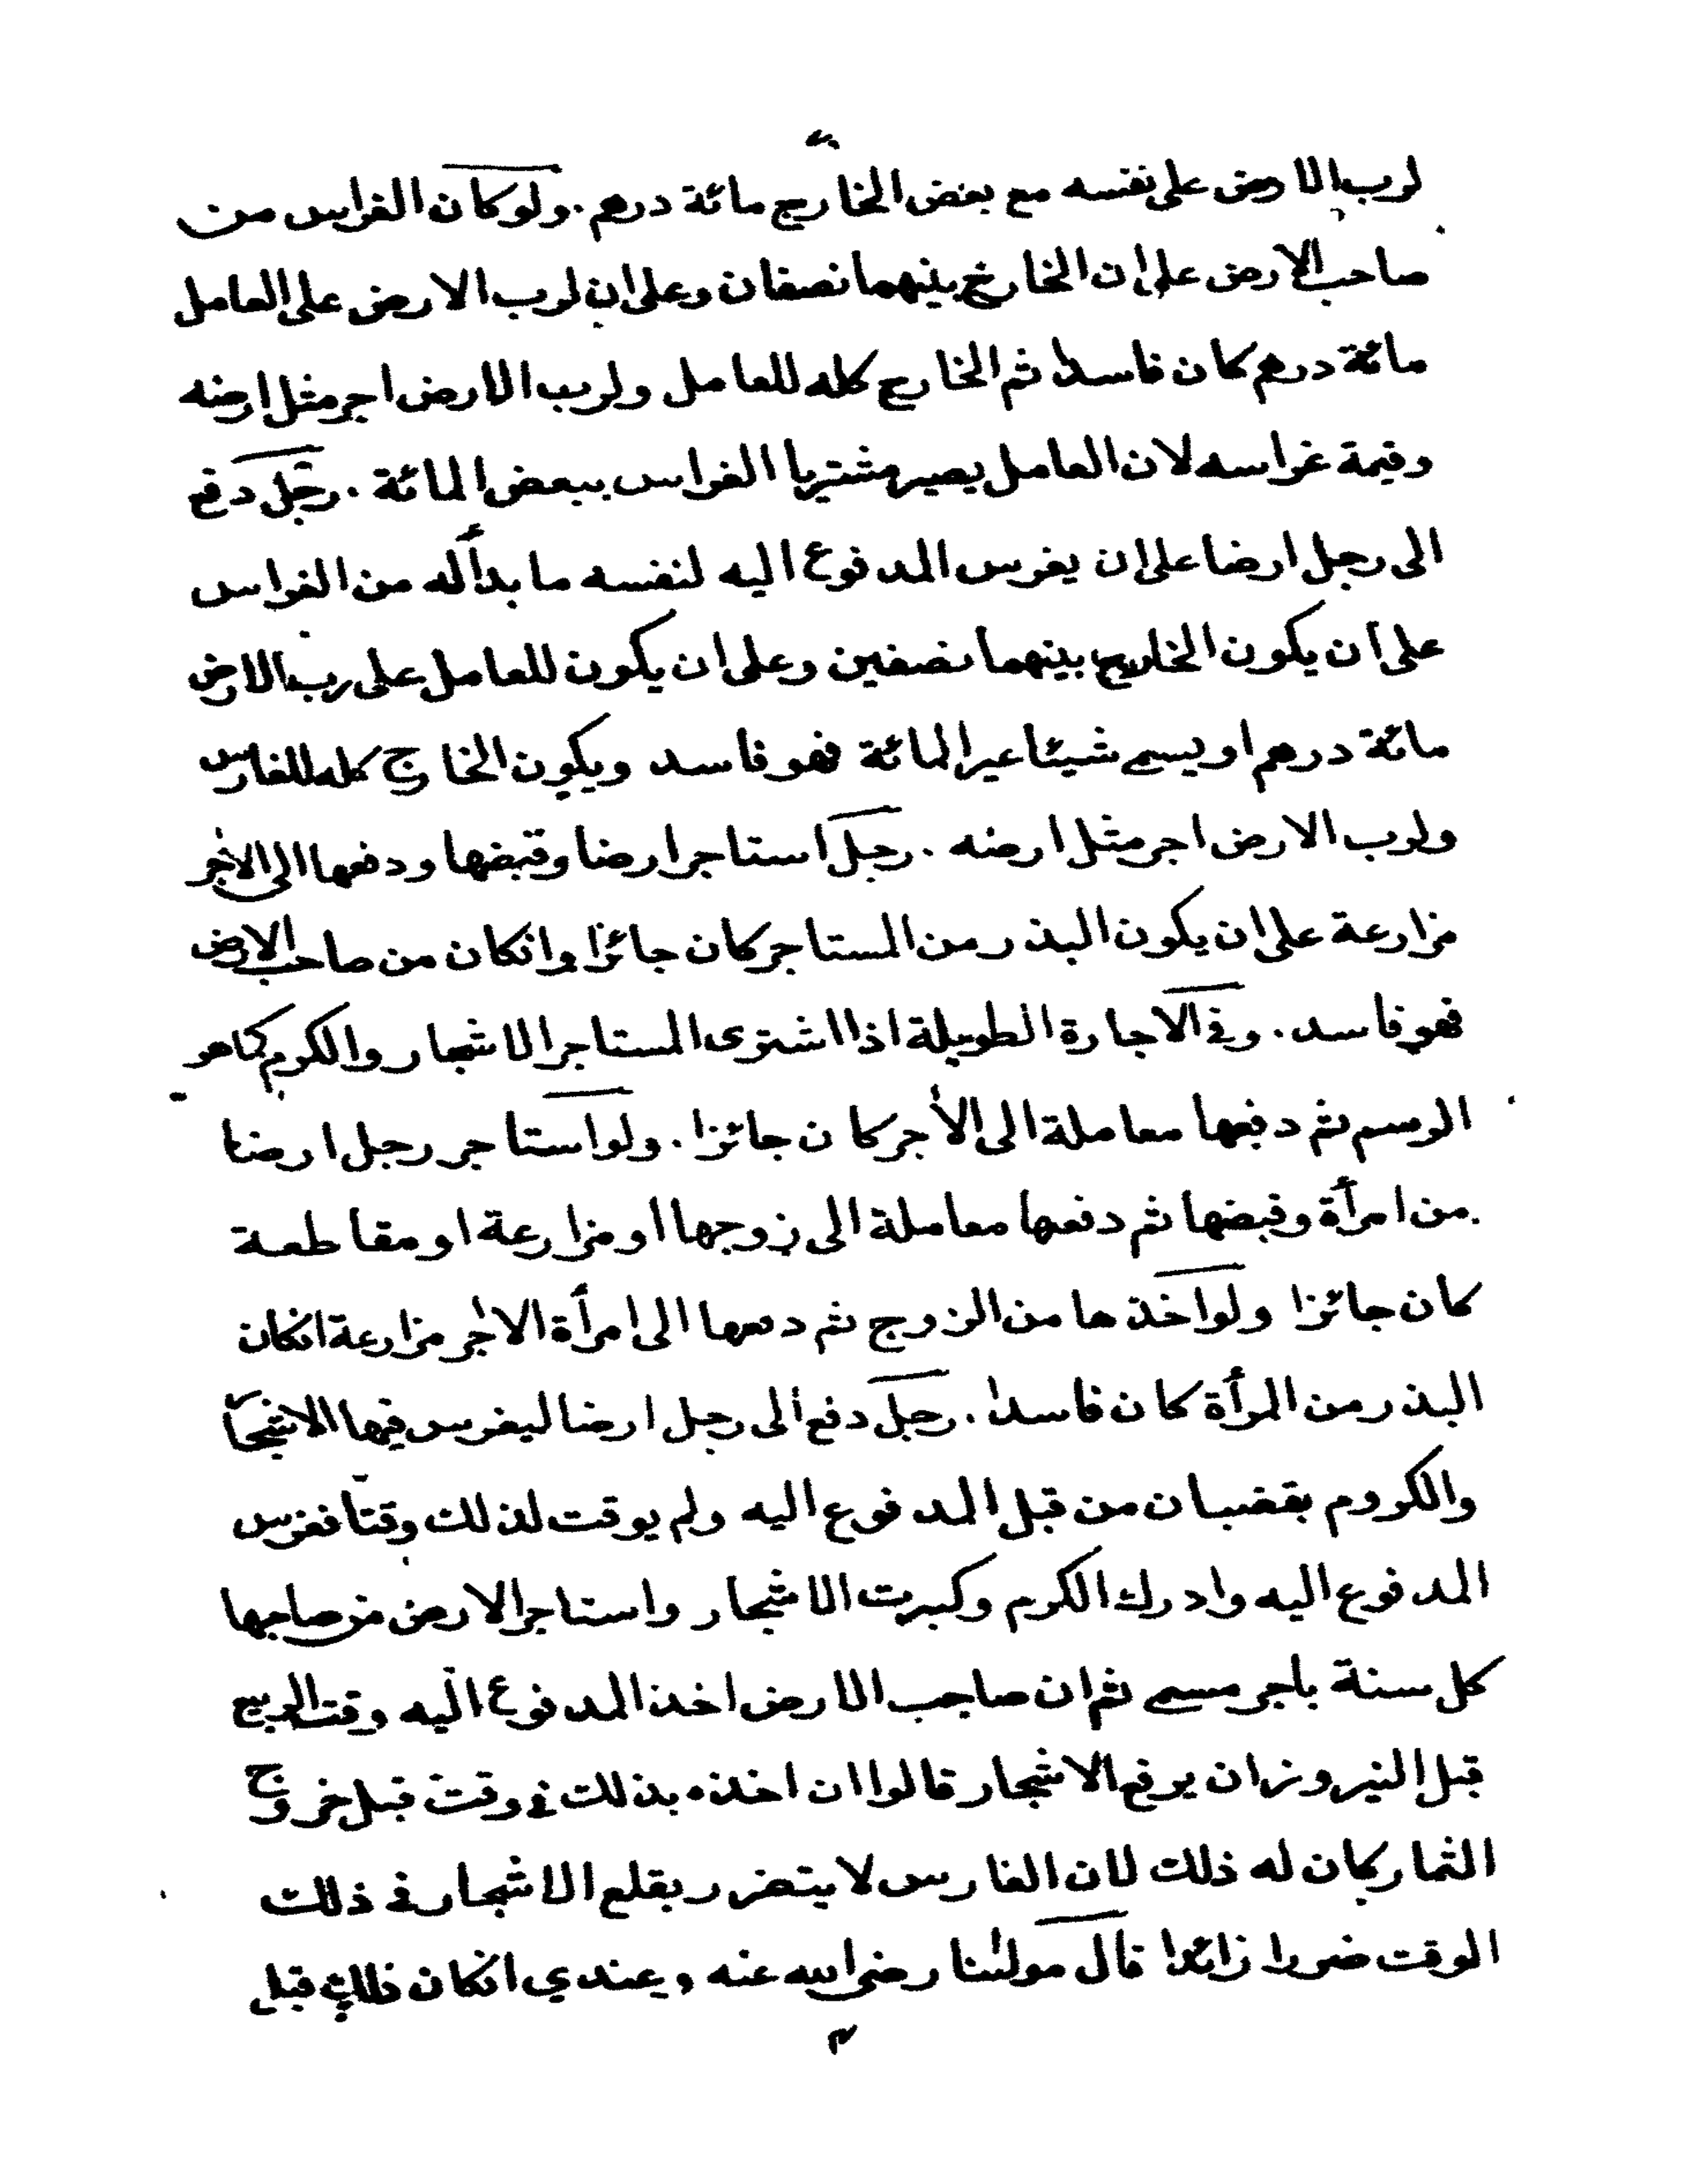 لرب الارض على نفسه مع بعض الخارج مائة درهم. ولو كان الغراس من
صاحب الارض على ان الخارج بينهما نصفان وعلى ان لرب الارض على العامل
مائة درهم كان فاسدا ثم الخارج كله للعامل ولرب الارض اجر مثل ارضه
وقيمة غراسه لان العامل يصير مشتريا الغراس ببعض المائة. رجل دفع
الى رجل ارضا على ان يغرس المدفوع اليه لنفسه ما بدأله من الغراس
على ان يكون الخارج بينهما نصفين وعلى ان يكون للعامل على رب الارض
مائة درهم او يسمى شيئا غير المائة فهو فاسد ويكون الخارج كله للغارس
ولرب الارض اجر مثل ارضه. رجل استاجر ارضا وقبضها ودفعها الى الاجر
مزارعة على ان يكون البذر من المستاجر كان جائزا وانكان من صاحب الارض
فهو فاسد. وفى الاجارة الطويلة اذا اشترى المستاجر الاشجار والكرم كما هو
الرسم ثم دفعها معاملة الى الأجر كان جائزا. ولو استاجر رجل ارضا
من امرأة وقبضها ثم دفعها معاملة الى زوجها او مزارعة او مقاطعة
كان جائزا ولو اخذها من الزوج ثم دفعها الى امرأة الاجر مزارعة انكان
البذر من المرأة كان فاسدا. رجل دفع الى رجل ارضا ليغرس فيها الاشجار
والكروم بقضبان من قبل المدفوع اليه ولم يوقت لذلك وقتا فغرس
المدفوع اليه وادرك الكرم وكبرت الاشجار واستاجر الارض من صاحبها
كل سنة باجر مسمى ثم ان صاحب الارض اخذ المدفوع اليه وقت الربيع
قبل النيروز ان يرفع الاشجار قالوا ان اخذه بذلك فى وقت قبل خروج
الثمار كان له ذلك لان الغارس لا يتضرر بقلع الاشجار فى ذلك
الوقت ضررا زائدا قال مولٰنا رضى الله عنه وعندي انكان ذلك قبل